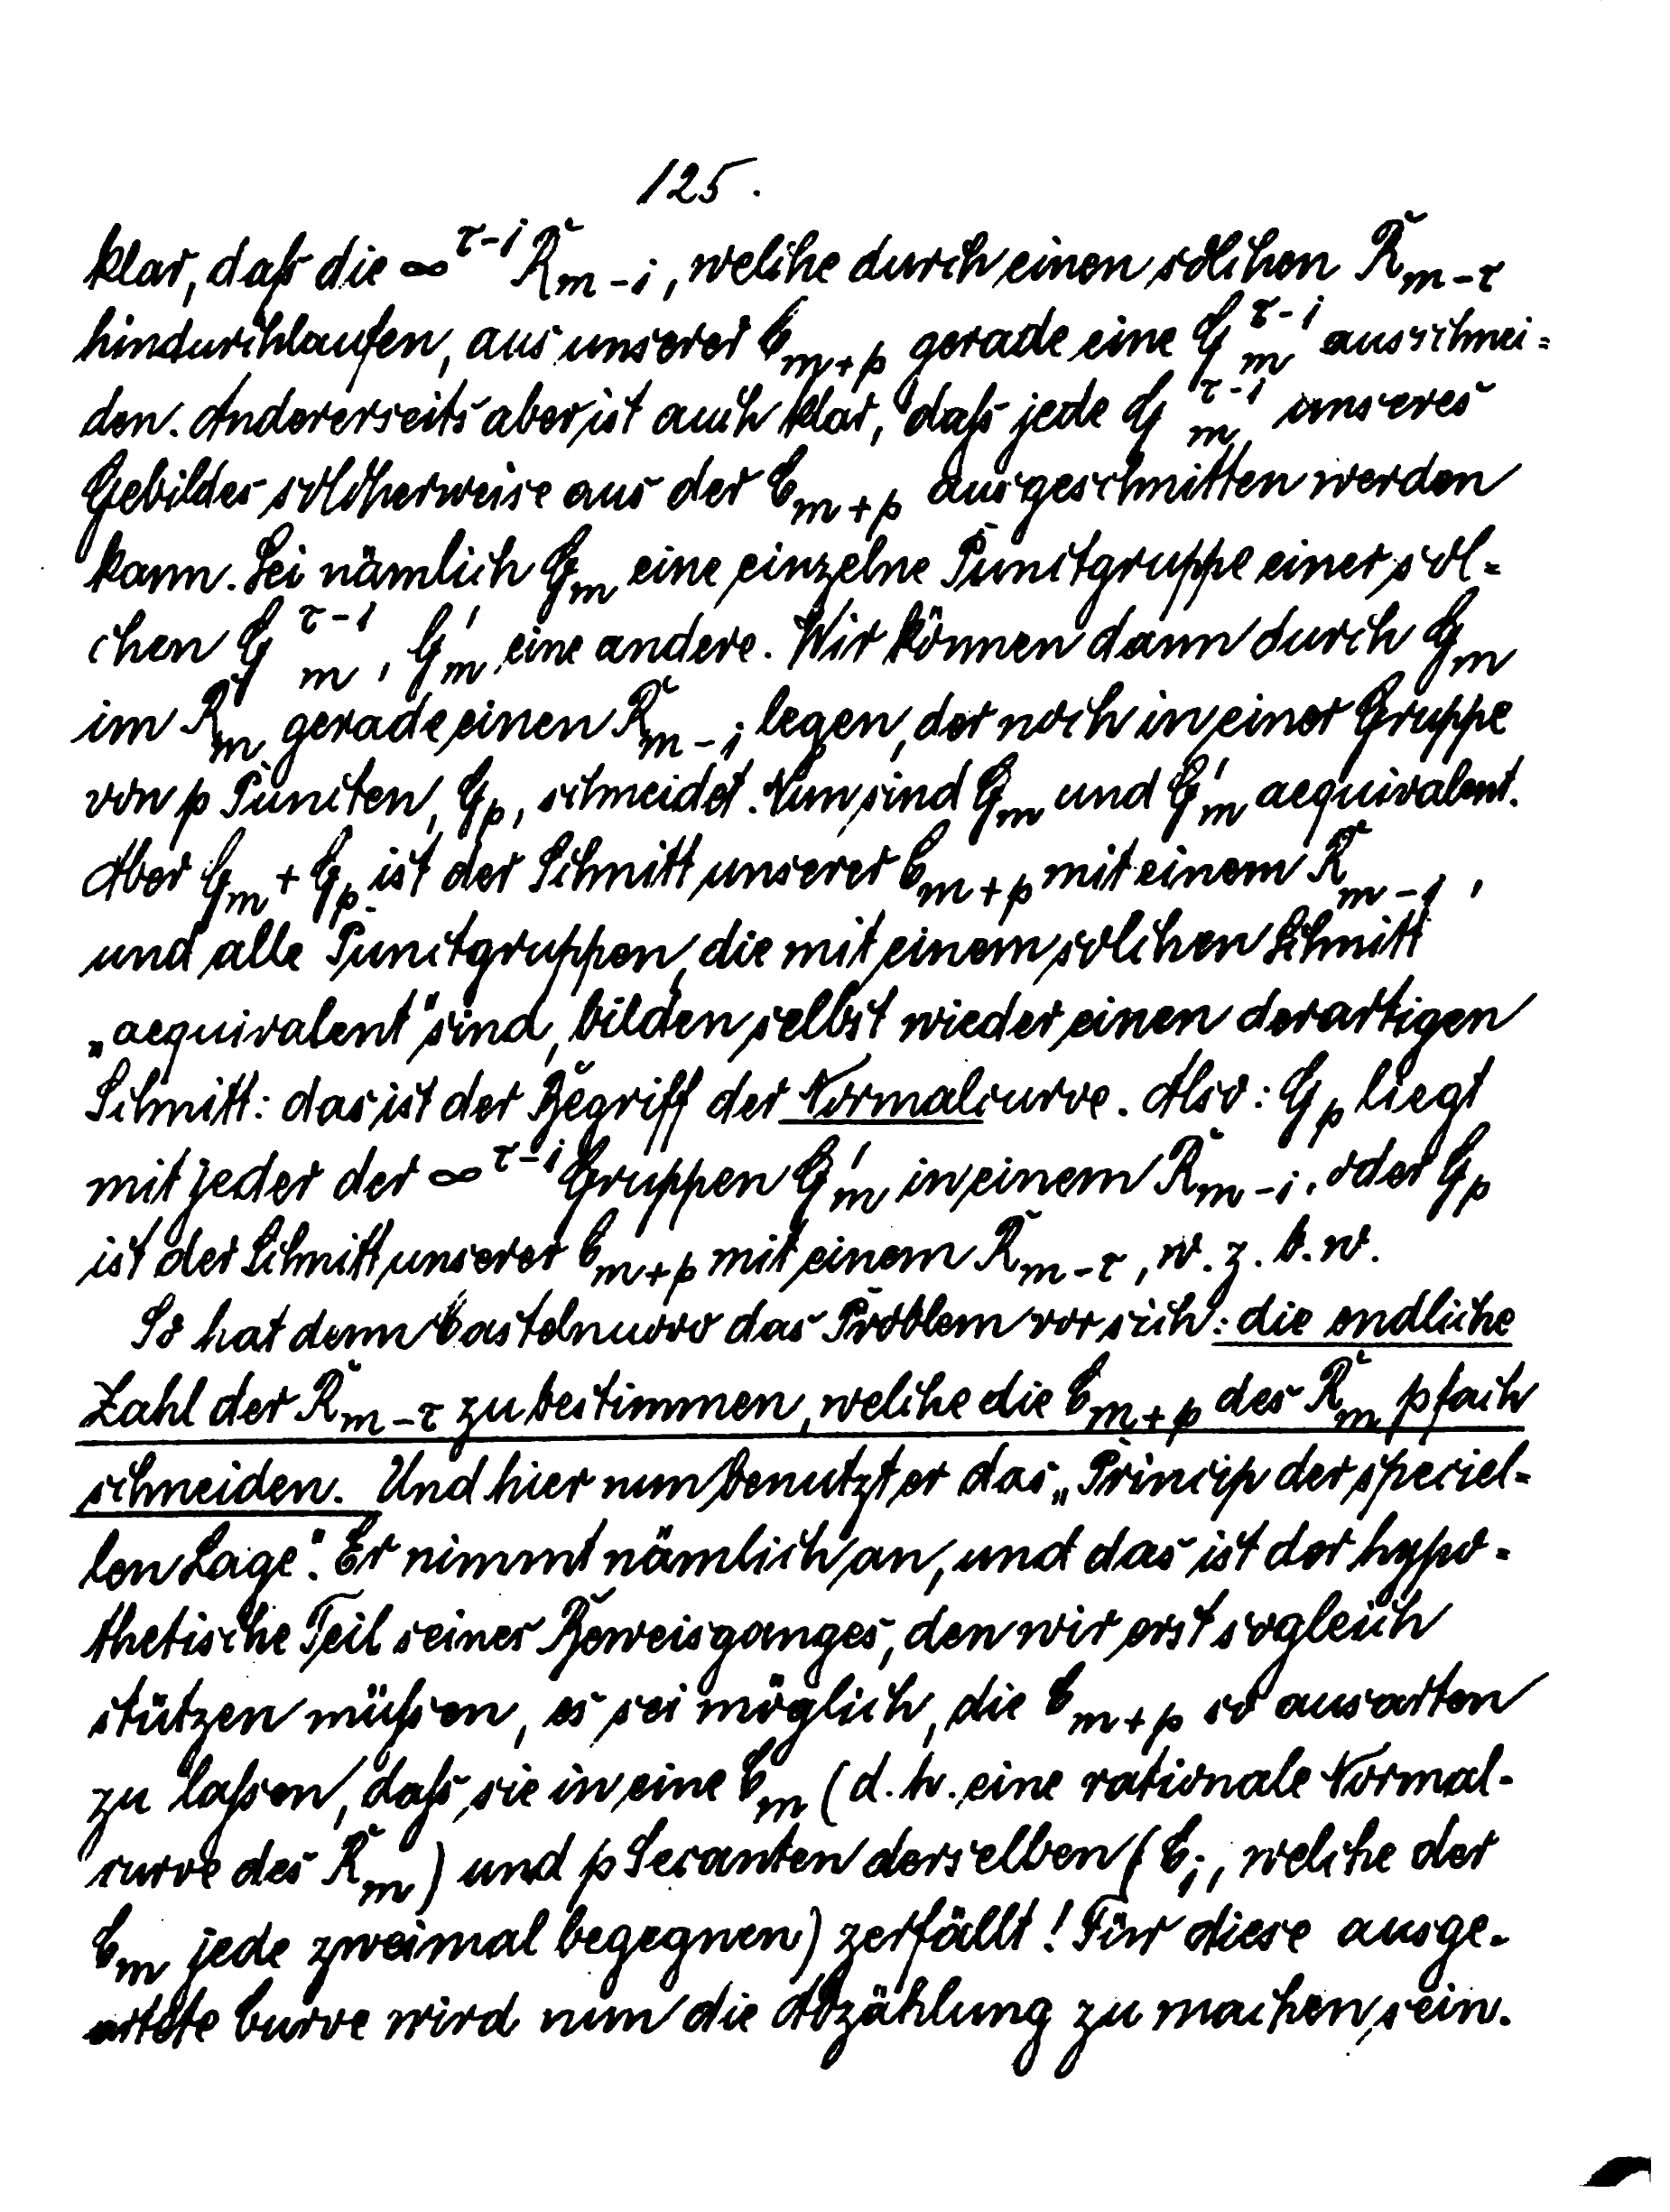 125.
klar, daß die ∞^{τ-1} R_{m-1}, welche durch einen solchen R_{m-τ}
hindurchlaufen, aus unserer C_{m+p} gerade eine G_m^{τ-1} ausschnei-
den. Andererseits aber ist auch klar, daß jede G_m^{τ-1} unseres
Gebildes solcherweise aus der C_{m+p} ausgeschnitten werden
kann. Sei nämlich G_m eine einzelne Punctgruppe einer sol-
chen G_m^{τ-1}, G'_m eine andere. Wir können dann durch G_m
im R_m gerade einen R_{m-1} legen, der noch in einer Gruppe
von p Puncten, G_p, schneidet. Nun sind G_m und G'_m aequivalent.
Aber G_m + G_p ist der Schnitt unserer C_{m+p} mit einem R_{m-1},
und alle Punctgruppen, die mit einem solchen Schnitt
„aequivalent" sind, bilden selbst wieder einen derartigen
Schnitt: das ist der Begriff der Normalcurve. Also: G_p liegt
mit jeder der ∞^{τ-1} Gruppen G'_m in einem R_{m-1}, oder G_p
ist der Schnitt unserer C_{m+p} mit einem R_{m-τ}, w. z. b. w.
So hat denn Castelnuovo das Problem vor sich: die endliche
Zahl der R_{m-τ} zu bestimmen, welche die C_{m+p} des R_m p fach
schneiden. Und hier nun benutzt er das „Princip der speciel-
len Lage". Er nimmt nämlich an, und das ist der hypo-
thetische Teil seines Beweisganges, den wir erst sogleich
stützen müßen, es sei möglich, die C_{m+p} so ausarten
zu laßen, daß sie in eine C_m (d. h. eine rationale Normal-
curve des R_m) und p Secanten derselben (C_1, welche der
C_m jede zweimal begegnen) zerfällt! Für diese ausge-
artete Curve wird nun die Abzählung zu machen sein.